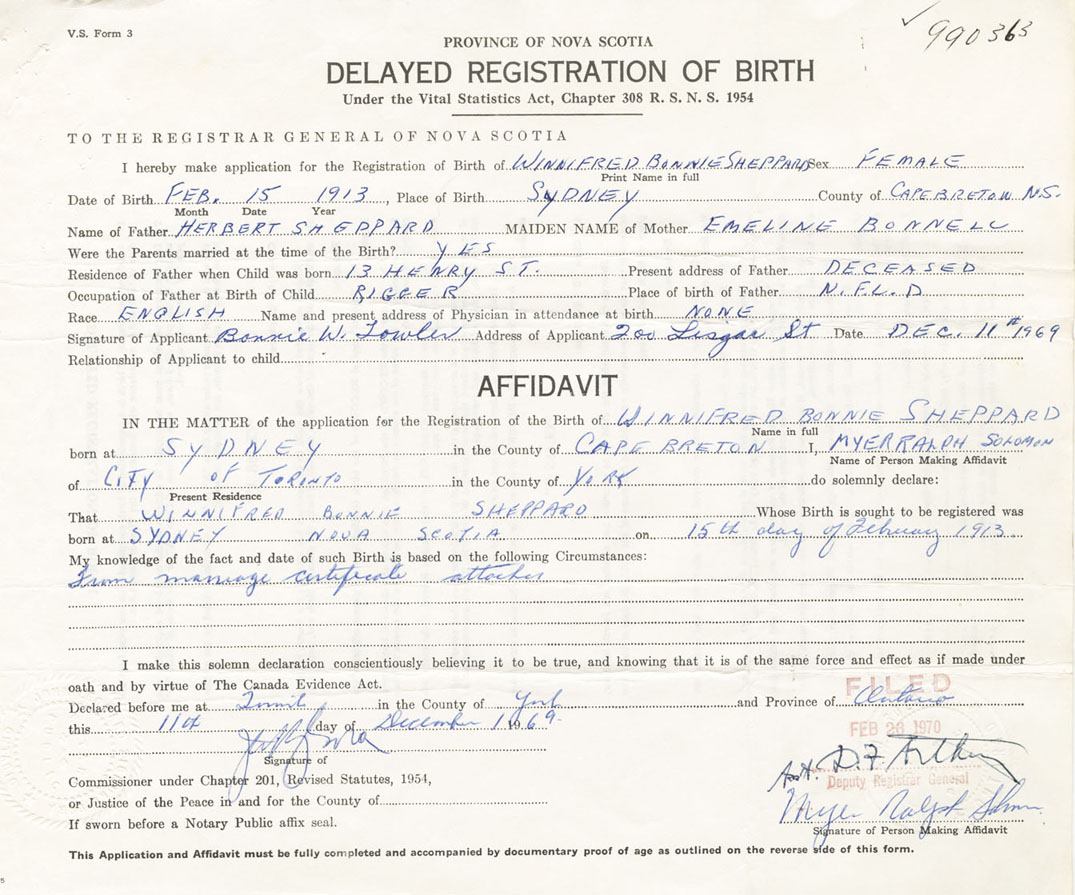 V.S. Form 3
990363
PROVINCE OF NOVA SCOTIA
DELAYED REGISTRATION OF BIRTH
Under the Vital Statistics Act, Chapter 308 R. S. N. S. 1954
TO THE REGISTRAR GENERAL OF NOVA SCOTIA
I hereby make application for the Registration of Birth of WINNIFRED BONNIE SHEPPARD Sex FEMALE
Print Name in full
Date of Birth FEB. 15 1913, Place of Birth SYDNEY County of CAPE BRETON N.S.
Month Date Year
Name of Father HERBERT SHEPPARD MAIDEN NAME of Mother EMELINE BONNELL
Were the Parents married at the time of the Birth? YES
Residence of Father when Child was born 13 HENRY ST. Present address of Father DECEASED
Occupation of Father at Birth of Child RIGGER Place of birth of Father N.F.L.D
Race ENGLISH Name and present address of Physician in attendance at birth NONE
Signature of Applicant Bonnie W. Fowler Address of Applicant 200 Lisgar St Date DEC. 11th 1969
Relationship of Applicant to child
AFFIDAVIT
IN THE MATTER of the application for the Registration of the Birth of WINNIFRED BONNIE SHEPPARD
Name in full
born at SYDNEY in the County of CAPE BRETON I, MYER RALPH SOLOMON
Name of Person Making Affidavit
of CITY OF TORONTO in the County of YORK do solemnly declare:
Present Residence
That WINNIFRED BONNIE SHEPPARD Whose Birth is sought to be registered was
born at SYDNEY NOVA SCOTIA on 15th day of February 1913
My knowledge of the fact and date of such Birth is based on the following Circumstances:
From marriage certificate attached
I make this solemn declaration conscientiously believing it to be true, and knowing that it is of the same force and effect as if made under
oath and by virtue of The Canada Evidence Act.
Declared before me at Toronto in the County of York and Province of Ontario
FILED
this 11th day of December 1969.
FEB 26 1970
Signature of
Asst. D.F. Arthur
Commissioner under Chapter 201, Revised Statutes, 1954,
Deputy Registrar General
or Justice of the Peace in and for the County of
Myer Ralph Solomon
If sworn before a Notary Public affix seal.
Signature of Person Making Affidavit
This Application and Affidavit must be fully completed and accompanied by documentary proof of age as outlined on the reverse side of this form.